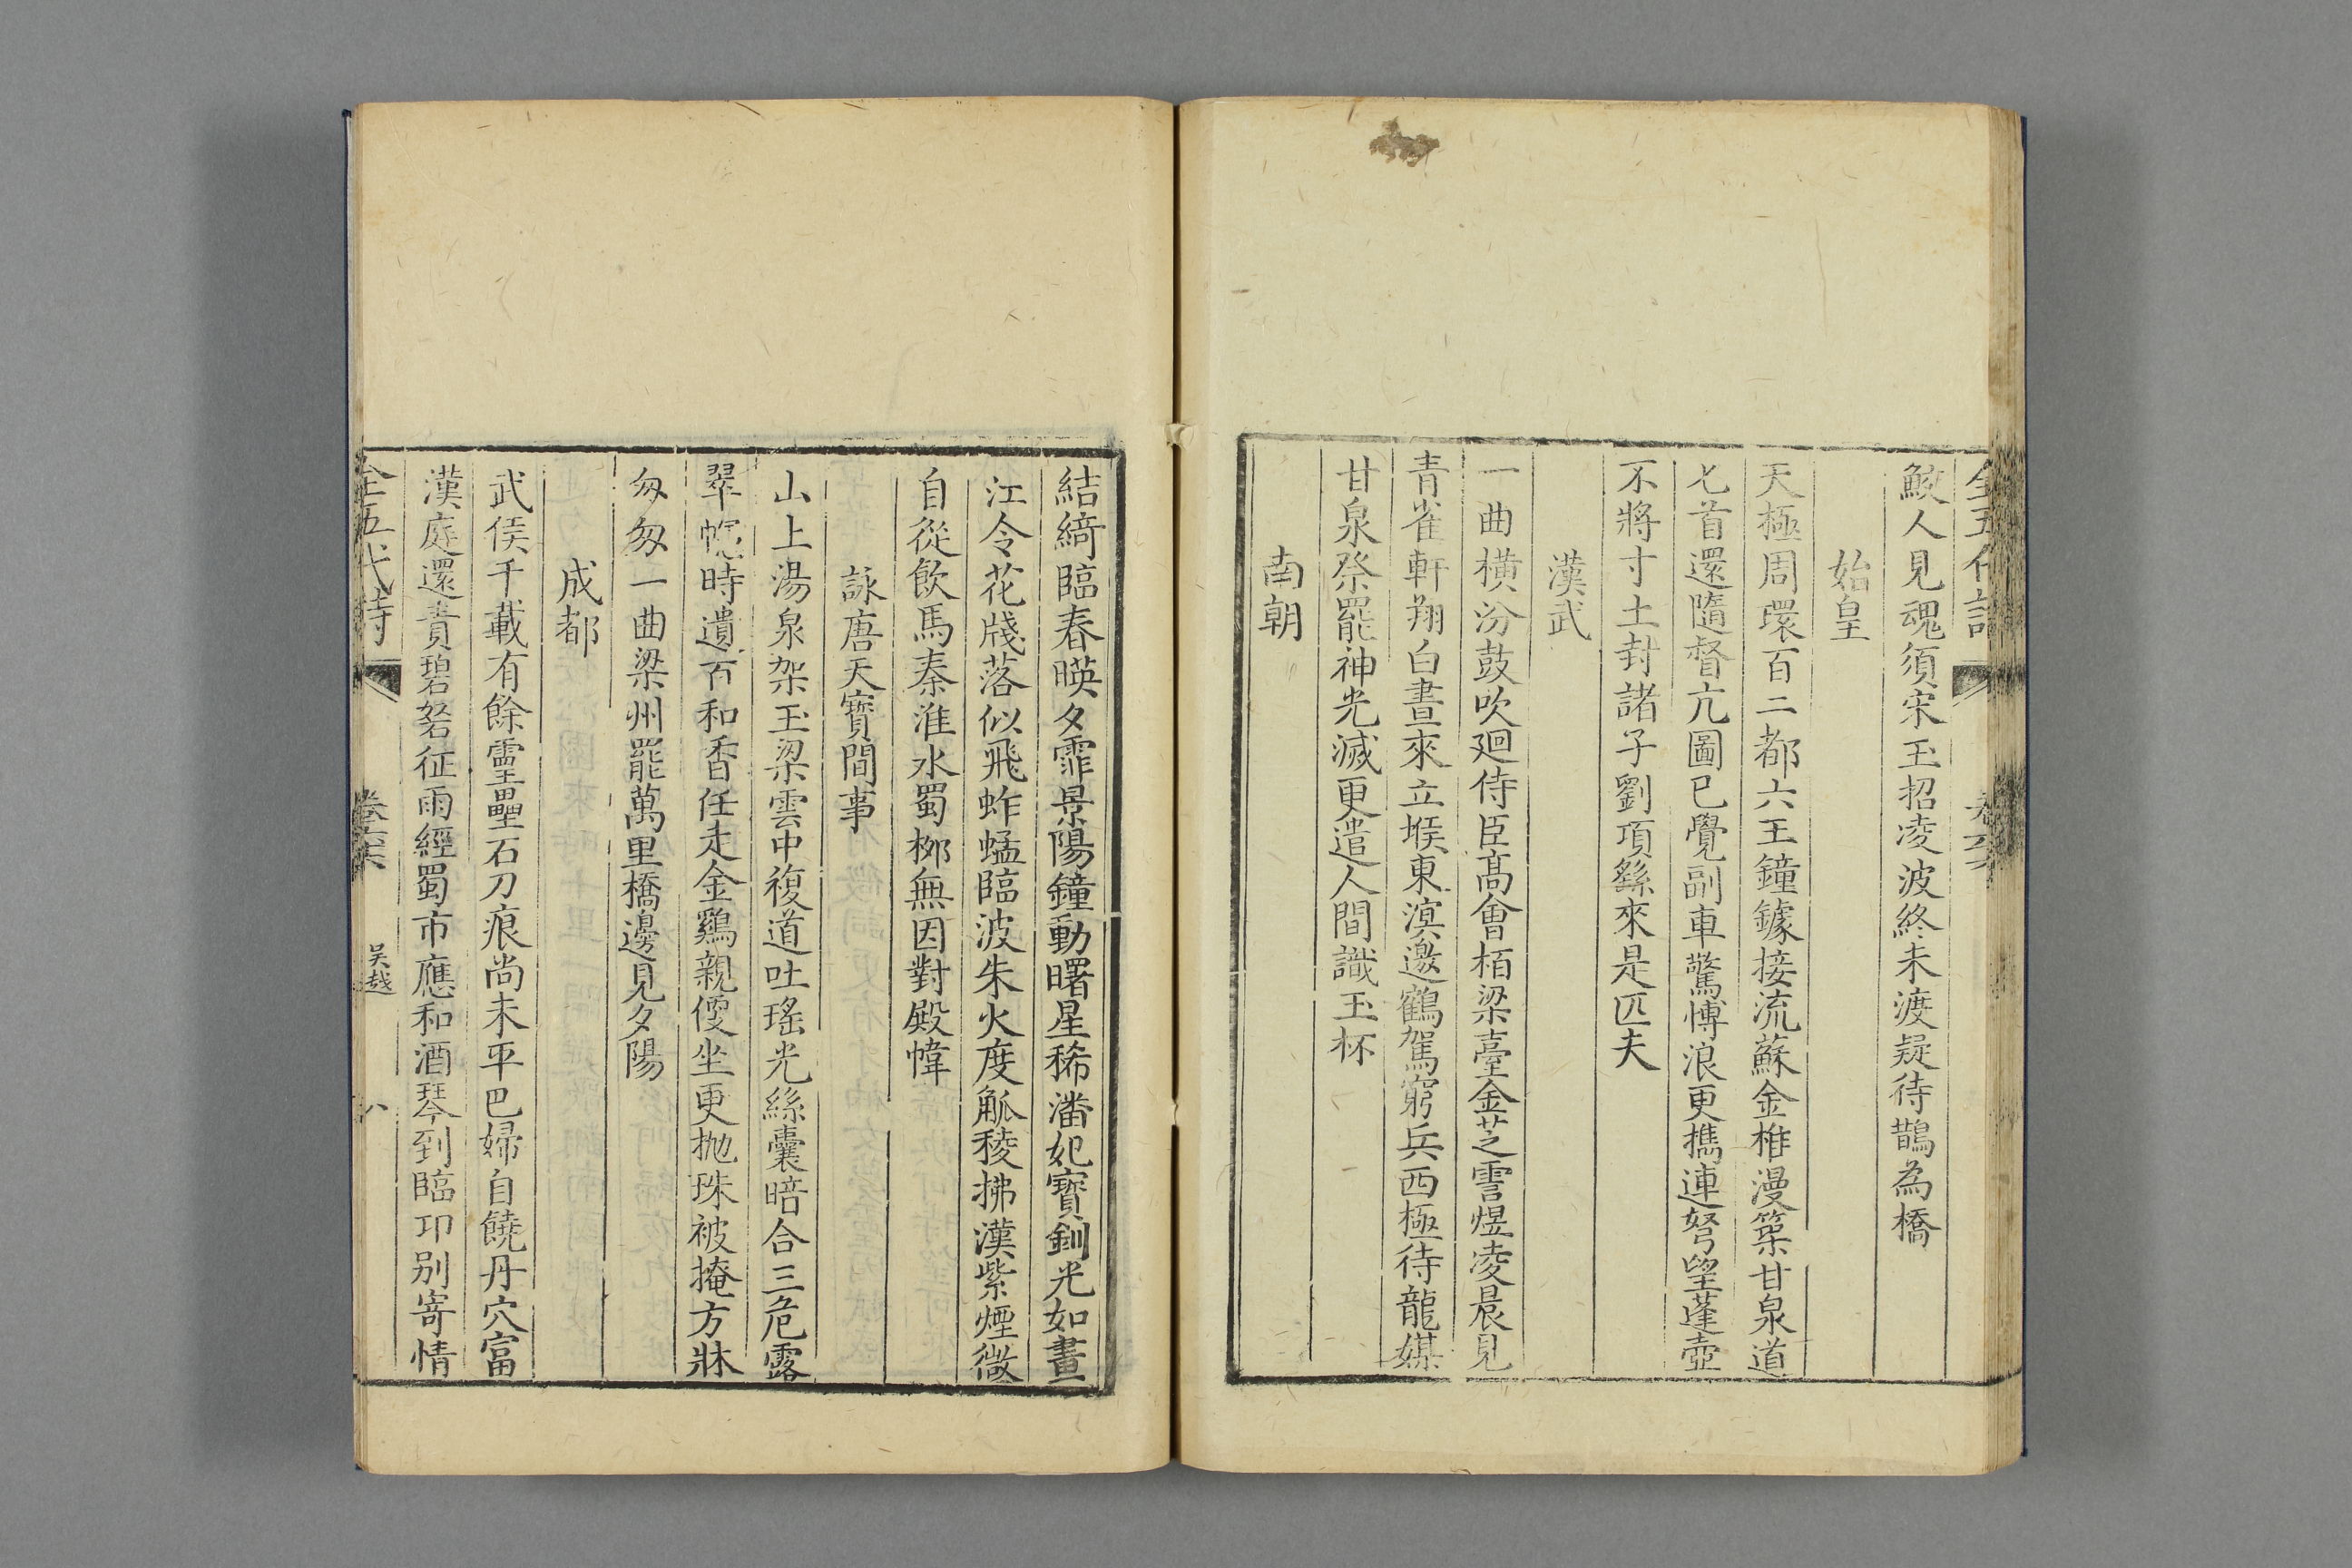 全五代詩 卷六
鮫人見魂須宋玉招凌波終未渡疑待鵲為橋
始皇
天極周環百二都六王鐘鐻接流蘇金椎漫築甘泉道
匕首還隨督亢圖已覺副車驚博浪更攜連弩望蓬壺
不將寸土封諸子劉項繇來是匹夫
漢武
一曲橫汾鼓吹廻侍臣高會栢梁臺金芝雪煜凌晨見
青雀軒翔白晝來立堠東溟邀鶴駕窮兵西極待龍媒
甘泉祭罷神光滅更遣人間識玉杯
南朝
結綺臨春暎夕霏景陽鐘動曙星稀潘妃寶釧光如晝
江令花牋落似飛蚱蜢臨波朱火度觚稜拂漢紫煙微
自從飲馬秦淮水蜀栁無因對殿幃
詠唐天寶間事
山上湯泉架玉梁雲中複道吐瑤光絲囊暗合三危露
翠幰時遺百和香任走金鷄親便坐更抛珠被掩方牀
匆匆一曲梁州罷萬里橋邊見夕陽
成都
武侯千載有餘靈壘石刀痕尚未平巴婦自饒丹穴富
漢庭還責碧砮征雨經蜀市應和酒琴到臨卭别寄情
全五代詩 卷六 吳越 八